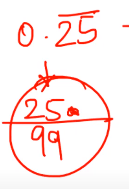 0.2̅5̅ -
25
99